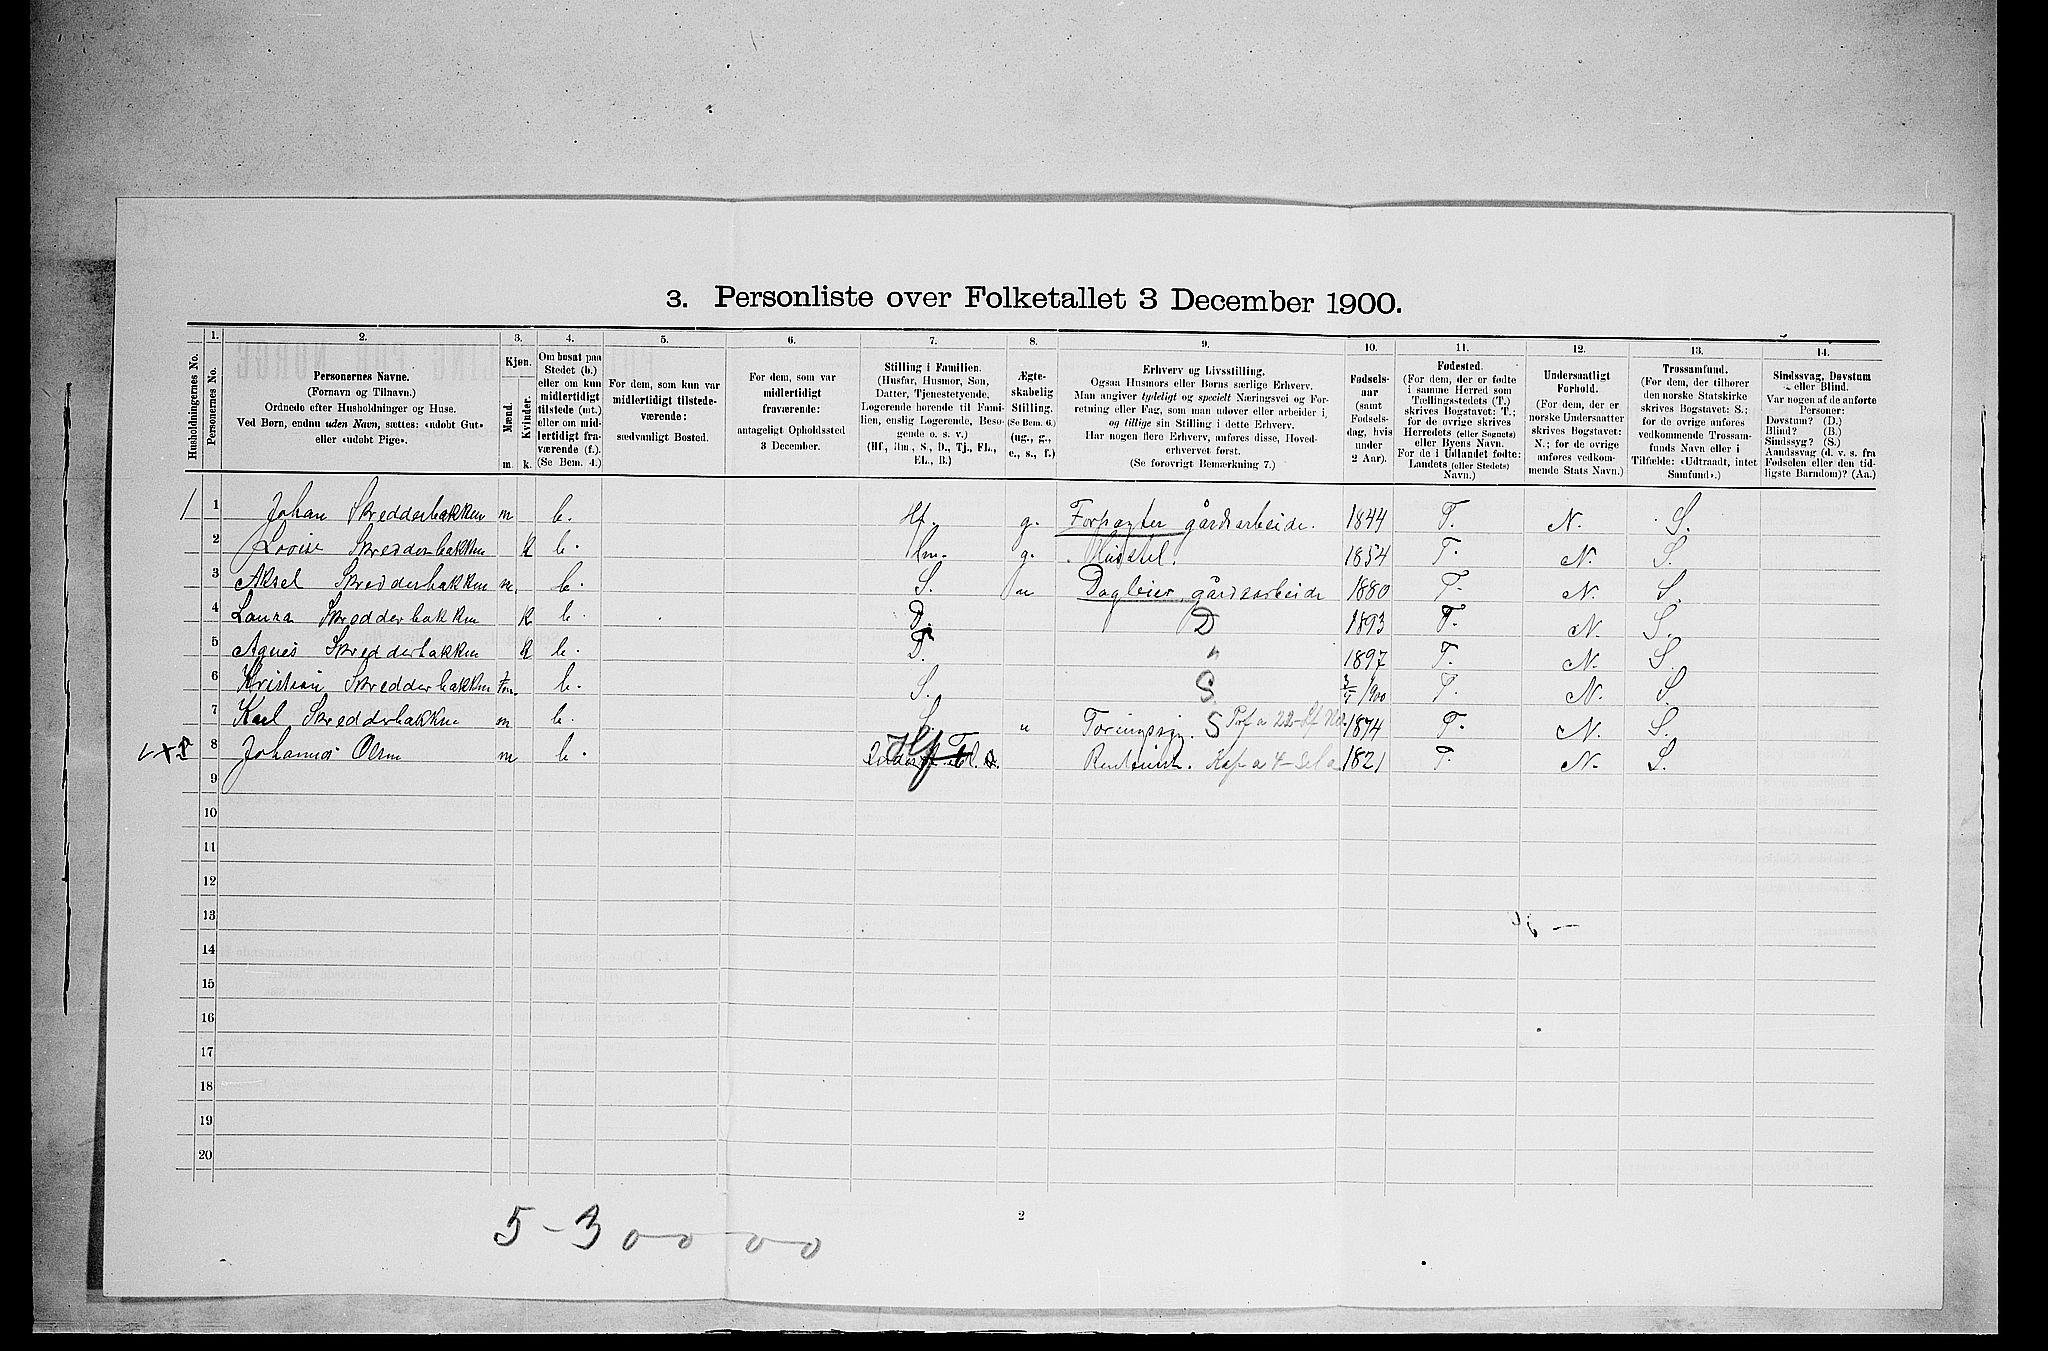 3. Personliste over Folketallet 3 December 1900.
1. 2. 3. 4. 5. 6. 7. 8. 9. 10. 11. 12. 13. 14.
Husholdningernes No.
Personernes No.
Personernes Navne.
(Fornavn og Tilnavn.)
Ordnede efter Husholdninger og Huse.
Ved Børn, endnu uden Navn, sættes: «udøbt Gut»
eller «udøbt Pige».
Kjøn.
Mænd.
Kvinder.
m. k.
Om bosat paa
Stedet (b.)
eller om kun
midlertidigt
tilstede (mt.)
eller om mid-
lertidigt fra-
værende (f.).
(Se Bem. 4.)
For dem, som kun var
midlertidigt tilstede-
værende:
sædvanligt Bosted.
For dem, som var
midlertidigt
fraværende:
antageligt Opholdssted
3 December.
Stilling i Familien.
(Husfar, Husmor, Søn,
Datter, Tjenestetyende,
Logerende hørende til Fami-
lien, enslig Logerende, Besø-
gende o. s. v.)
(Hf., Hm., S., D., Tj., FL.,
EL., B.)
Ægte-
skabelig
Stilling.
(Se Bem. 6.)
(ug., g.,
e., s., f.)
Erhverv og Livsstilling.
Ogsaa Husmors eller Børns særlige Erhverv.
Man angiver tydeligt og specielt Næringsvei og For-
retning eller Fag, som man udøver eller arbeider i,
og tillige sin Stilling i dette Erhverv.
Har nogen flere Erhverv, anføres disse, Hoved-
erhvervet først.
(Se forøvrigt Bemærkning 7.)
Fødsels-
aar
(samt
Fødsels-
dag, hvis
under
2 Aar).
Fødested.
(For dem, der er fødte
i samme Herred som
Tællingsstedets (T.)
skrives Bogstavet: T.;
for de øvrige skrives
Herredets (eller Sognets)
eller Byens Navn.
For de i Udlandet fødte:
Landets (eller Stedets)
Navn.)
Undersaatligt
Forhold.
(For dem, der er
norske Undersaatter
skrives Bogstavet:
N.; for de øvrige
anføres vedkom-
mende Stats Navn.)
Trossamfund.
(For dem, der tilhører
den norske Statskirke
skrives Bogstavet: S.;
for de øvrige anføres
vedkommende Trossam-
funds Navn eller i
Tilfælde: «Udtraadt, intet
Samfund».)
Sindssvag, Døvstum
eller Blind.
Var nogen af de anførte
Personer:
Døvstum? (D.)
Blind? (B.)
Sindssyg? (S.)
Aandssvag (d. v. s. fra
Fødselen eller den tid-
ligste Barndom)? (Aa.)
1 1 Johan Skredderbakken m b. Hf. g. Forpagter gårdsarbeide. 1844 T. N. S.
2 Lovise Skredderbakken k b. hm. g. Husstel. 1854 T. N. S.
3 Aksel Skredderbakken m. b. S. u Dagleier, gårdsarbeide 1880 T. N. S.
4 Laura Skredderbakken k b. D. D 1893 T. N. S.
5 Agnes Skredderbakken k b. D. " 1897 T. N. S.
6 Kristian Skredderbakken m. b. S. S 1900 T. N. S.
7 Karl Skredderbakken m b. S. u S 1874 T. N. S.
8 Johannes Olsen m b. Hf 1821 T. N. S.
9
10
11
12
13
14
15
16
17
18
19
20
5-3 0 0 0 0
2